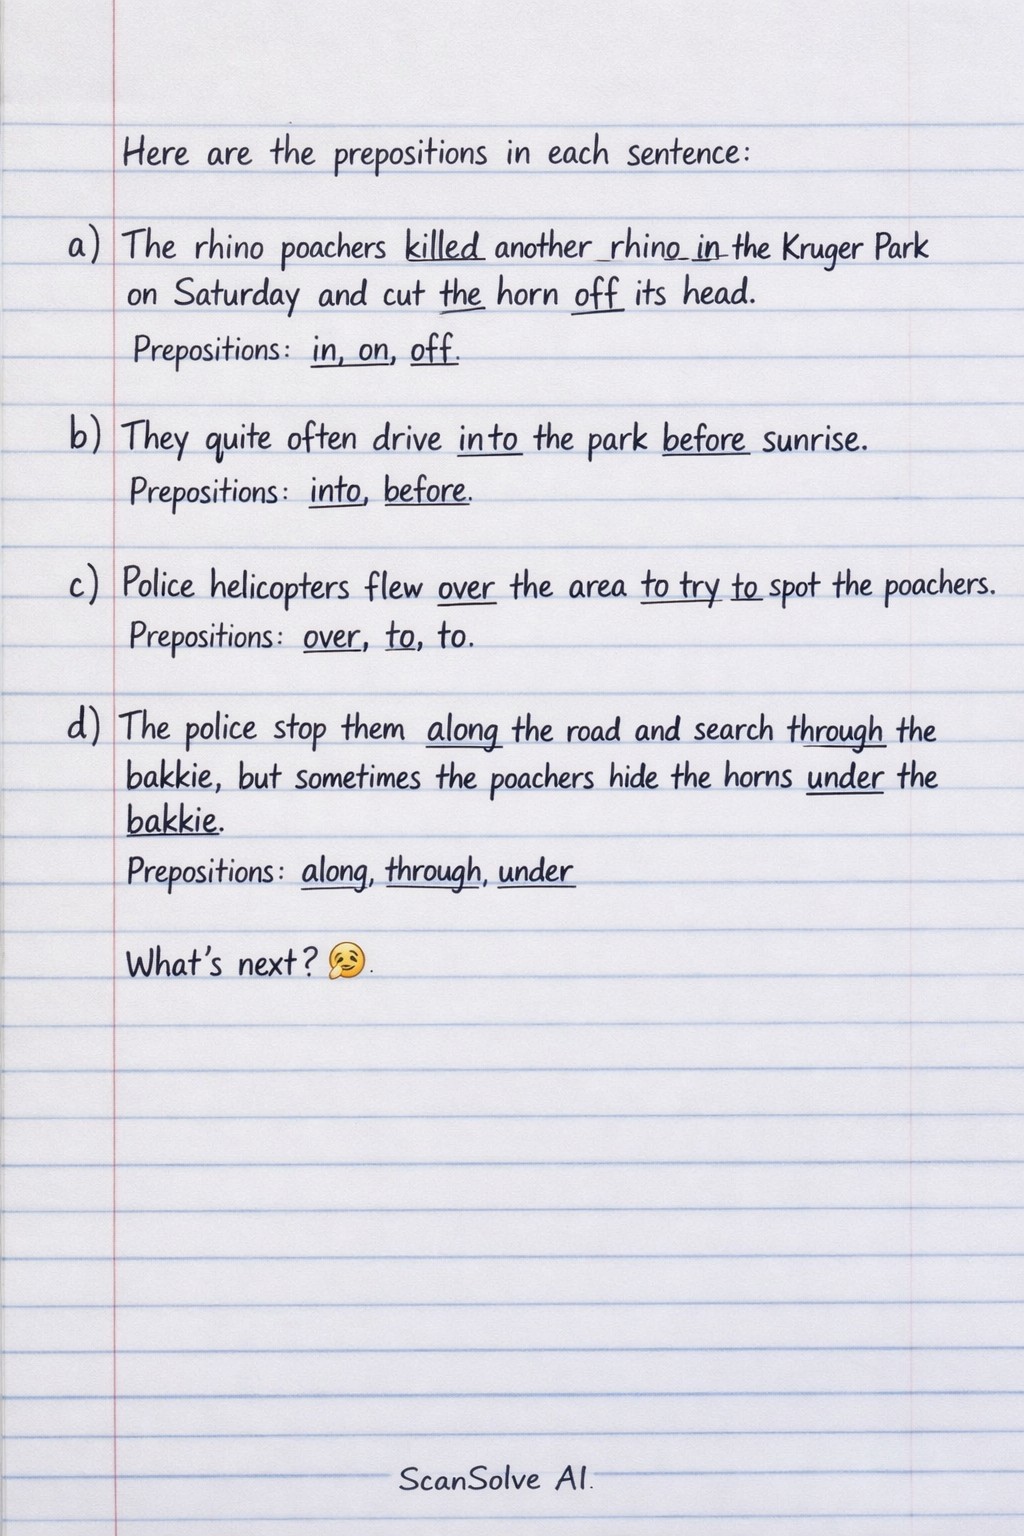 Here are the prepositions in each sentence:
a) The rhino poachers killed another rhino in the Kruger Park
on Saturday and cut the horn off its head.
Prepositions: in, on, off.
b) They quite often drive into the park before sunrise.
Prepositions: into, before.
c) Police helicopters flew over the area to try to spot the poachers.
Prepositions: over, to, to.
d) The police stop them along the road and search through the
bakkie, but sometimes the poachers hide the horns under the
bakkie.
Prepositions: along, through, under
What's next? 🥲.
ScanSolve AI.